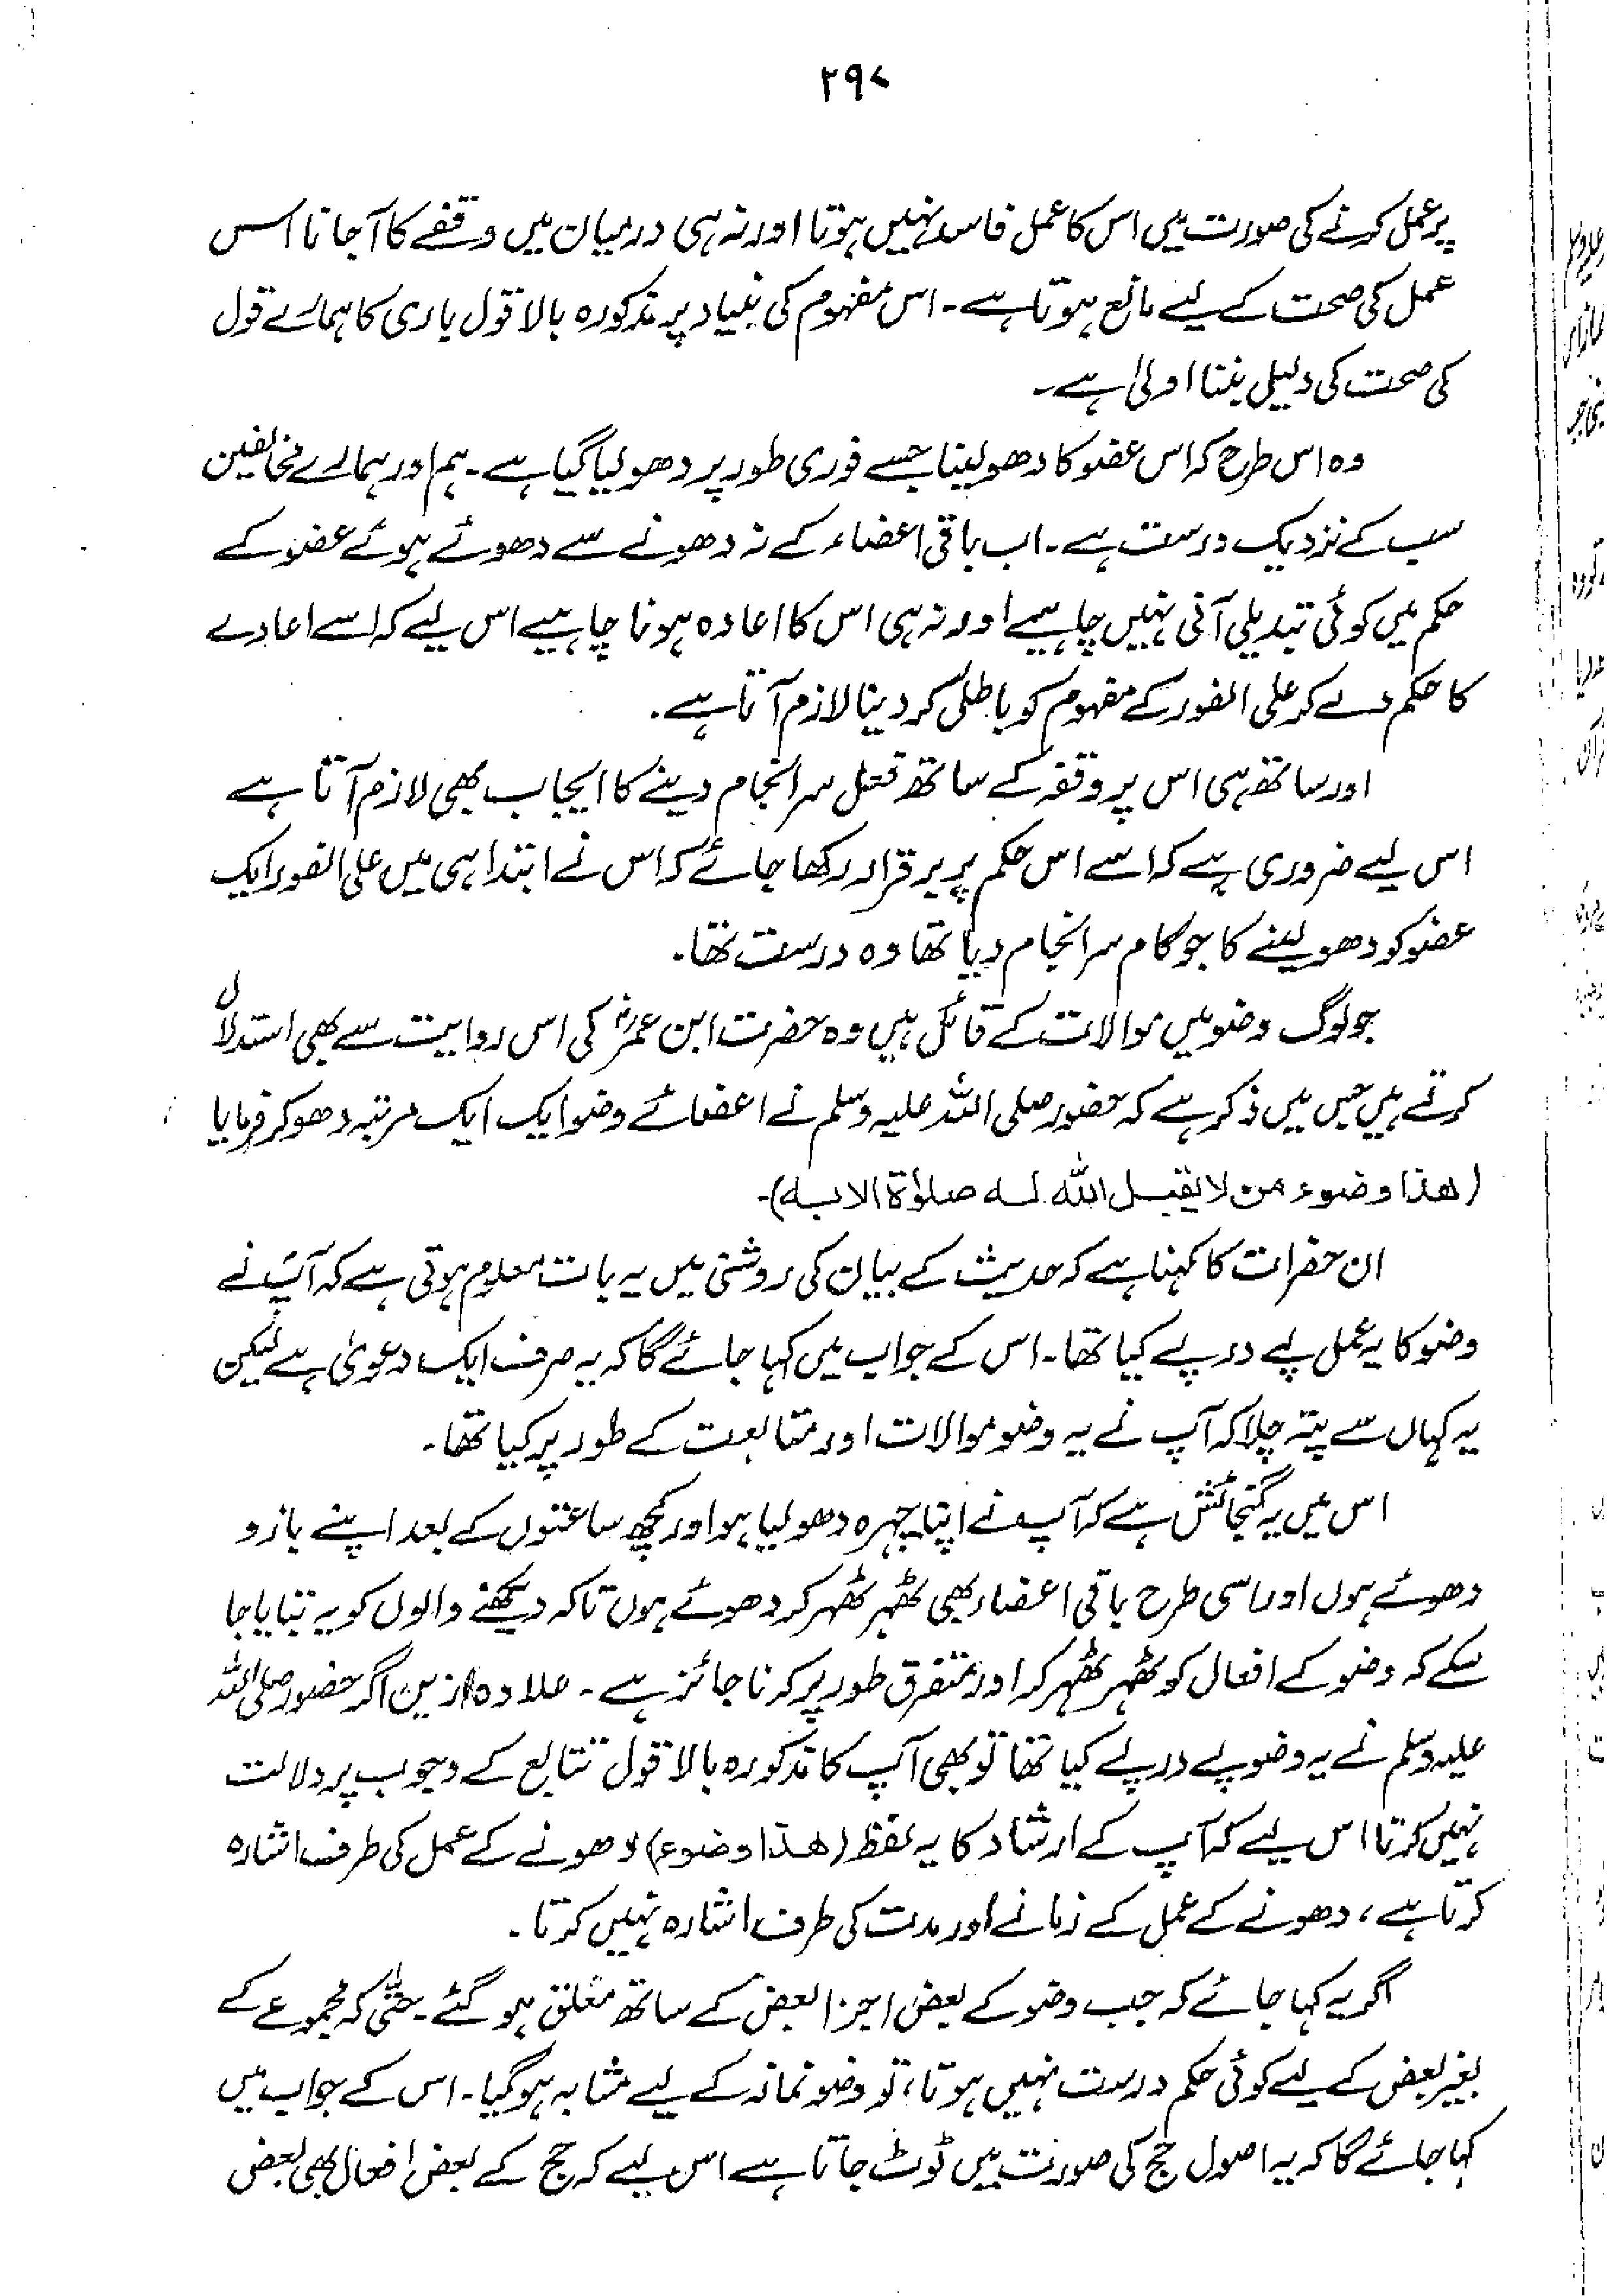 ۲۹۷
پر عمل کرنے کی صورت میں اس کا عمل فاسد نہیں ہوتا اور نہ ہی درمیان میں وقفے کا آجانا اس
عمل کی صحت کے لیے مانع ہوتا ہے۔ اس مفہوم کی بنیاد پر مذکورہ بالا قول باری کا ہمارے قول
کی صحت کی دلیل بننا اولیٰ ہے۔
وہ اس طرح کہ اس عضو کا دھو لینا جسے فوری طور پر دھو لیا گیا ہے۔ ہم اور ہمارے مخالفین
سب کے نزدیک درست ہے۔ اب باقی اعضاء کے نہ دھونے سے دھوئے ہوئے عضو کے
حکم میں کوئی تبدیلی آنی نہیں چاہیے اور نہ ہی اس کا اعادہ ہونا چاہیے اس لیے کہ اسے اعادے
کا حکم دے کر علی الفور کے مفہوم کو باطل کر دینا لازم آتا ہے۔
اور ساتھ ہی اس پر وقفہ کے ساتھ فعل سرانجام دینے کا ایجاب بھی لازم آتا ہے
اس لیے ضروری ہے کہ اسے اس حکم پر برقرار رکھا جائے کہ اس نے ابتدا ہی میں علی الفور ایک
عضو کو دھو لینے کا جو کام سرانجام دیا تھا وہ درست تھا۔
جو لوگ وضو میں موالات کے قائل ہیں وہ حضرت ابن عمرؓ کی اس روایت سے بھی استدلال
کرتے ہیں جس میں ذکر ہے کہ حضور صلی اللہ علیہ وسلم نے اعضائے وضو ایک ایک مرتبہ دھو کر فرمایا
(هذا وضوء من لا يقبل الله له صلوٰة الا به)۔
ان حضرات کا کہنا ہے کہ حدیث کے بیان کی روشنی میں یہ بات معلوم ہوتی ہے کہ آپ نے
وضو کا یہ عمل پے درپے کیا تھا۔ اس کے جواب میں کہا جائے گا کہ یہ صرف ایک دعویٰ ہے لیکن
یہ کہاں سے پتہ چلا کہ آپ نے یہ وضو موالات اور متابعت کے طور پر کیا تھا۔
اس میں یہ گنجائش ہے کہ آپ نے اپنا چہرہ دھو لیا ہو اور کچھ ساعتوں کے بعد اپنے بازو
دھوئے ہوں اور اسی طرح باقی اعضاء بھی ٹھہر ٹھہر کر دھوئے ہوں تاکہ دیکھنے والوں کو یہ بتایا جا
سکے کہ وضو کے افعال کو ٹھہر ٹھہر کر اور متفرق طور پر کرنا جائز ہے۔ علاوہ ازیں اگر حضور صلی اللہ
علیہ وسلم نے یہ وضو پے درپے کیا تھا تو بھی آپ کا مذکورہ بالا قول تتابع کے وجوب پر دلالت
نہیں کرتا اس لیے کہ آپ کے ارشاد کا یہ لفظ (هذا وضوء) دھونے کے عمل کی طرف اشارہ
کرتا ہے، دھونے کے عمل کے زمانے اور مدت کی طرف اشارہ نہیں کرتا۔
اگر یہ کہا جائے کہ جب وضو کے بعض اجزا بعض کے ساتھ معلق ہو گئے۔ حتٰی کہ مجموعے کے
بغیر بعض کے لیے کوئی حکم درست نہیں ہوتا، تو وضو نماز کے لیے مشابہ ہو گیا۔ اس کے جواب میں
کہا جائے گا کہ یہ اصول حج کی صورت میں ٹوٹ جاتا ہے اس لیے کہ حج کے بعض افعال بھی بعض